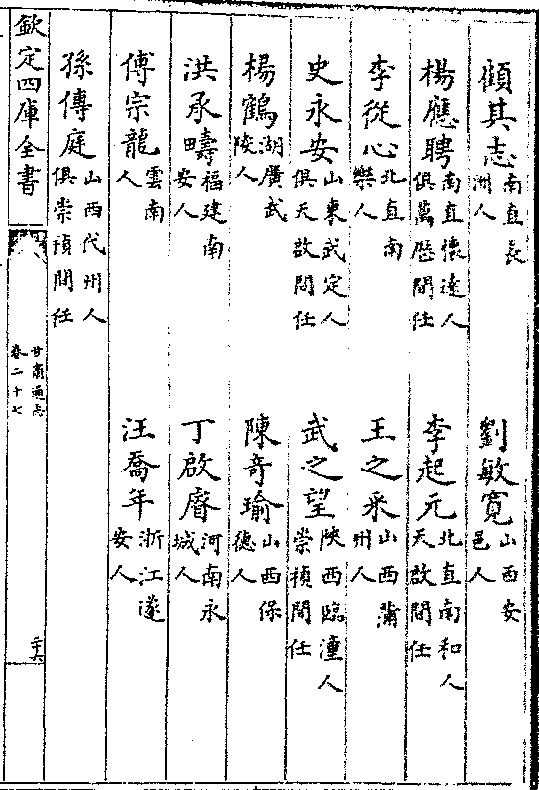 顧其志南直長洲人　劉敏寛山西安邑人
楊應聘南直懐逺人俱萬厯間任　李起元北直南和人天啟間任
李從心北直南樂人　王之采山西蒲州人
史永安山東武定人俱天啟間任　武之望陜西臨潼人崇禎間任
楊鶴湖廣武陵人　陳竒瑜山西保徳人
洪承疇福建南安人　丁啟睿河南永城人
傅宗龍雲南人　汪喬年浙江遂安人
孫傳庭山西代州人俱崇禎間任
欽定四庫全書
甘肅通志
卷二十七
二十六